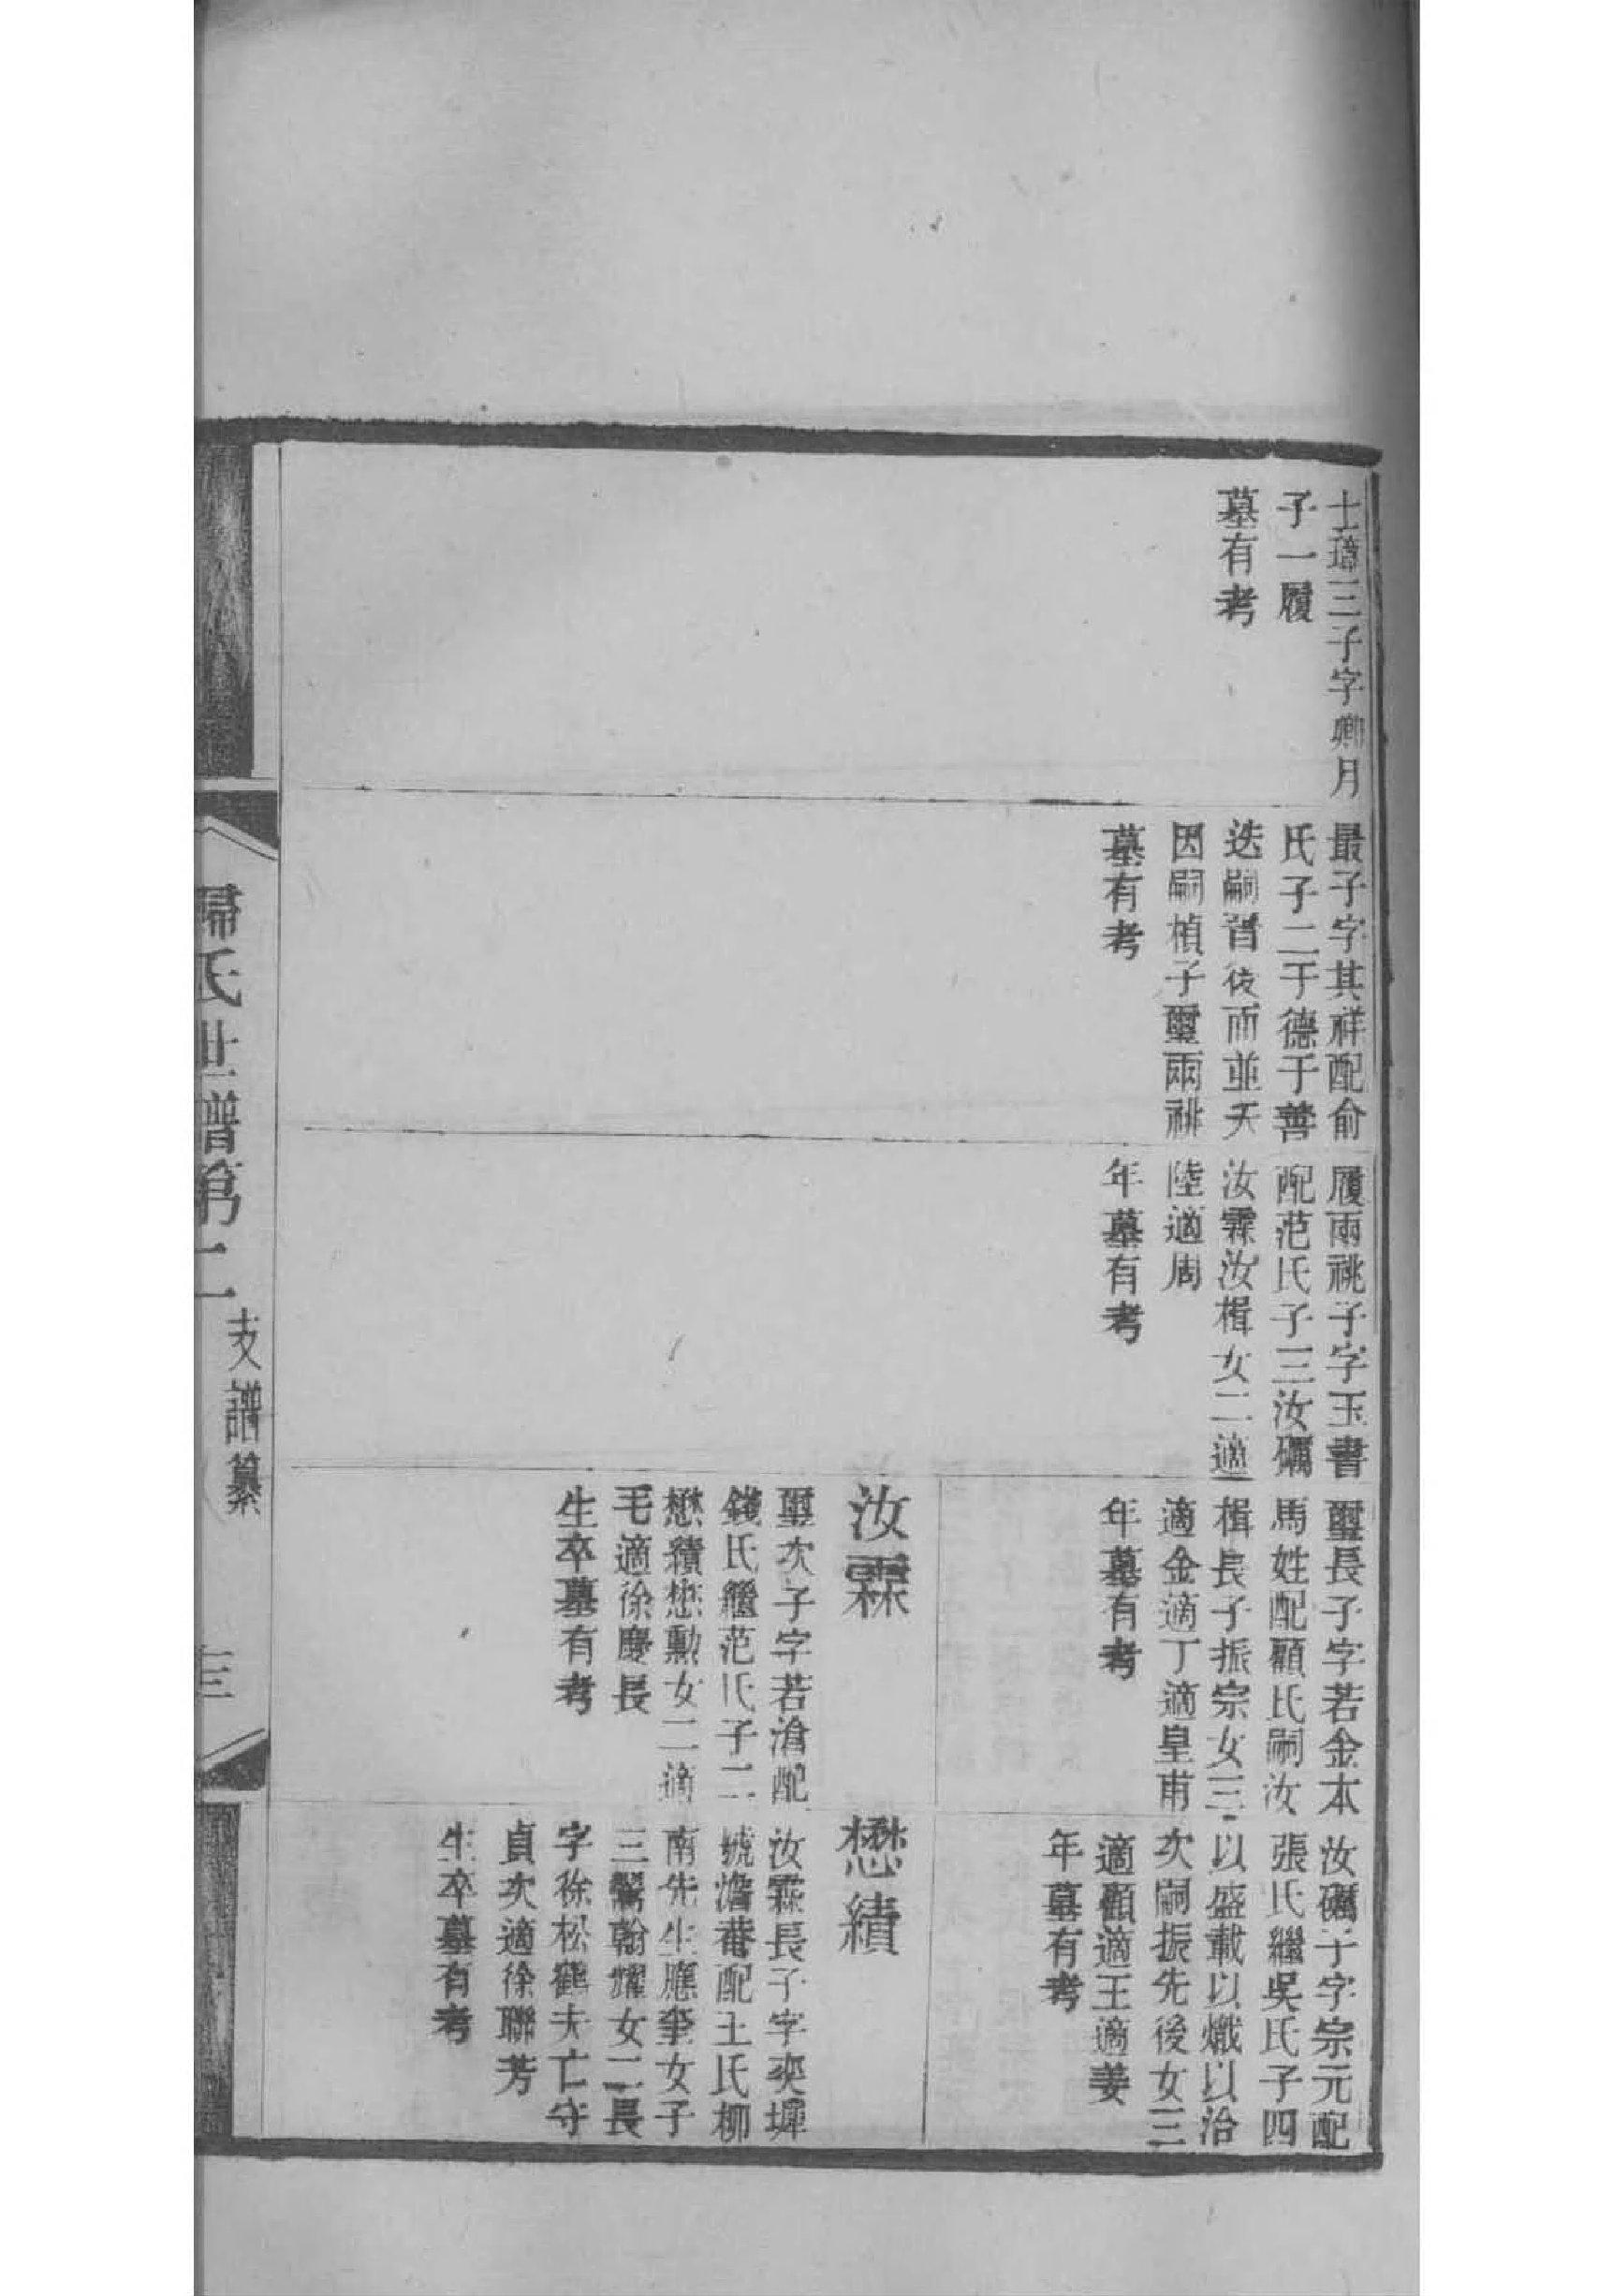 士璿三子字卿月
子一履
墓有考
最子字其祥配俞
氏子二于德于善
迭嗣晉後而並夭
因嗣楨子璽兩祧
墓有考
履兩祧子字玉書
配范氏子三汝礪
汝霖汝楫女二適
陸適周
年墓有考
璽長子字若金本
馬姓配顧氏嗣汝
楫長子振宗女三
適金適丁適皇甫
年墓有考
汝霖
璽次子字若滄配
錢氏繼范氏子二
懋績懋勳女二適
毛適徐慶長
生卒墓有考
汝礪子字宗元配
張氏繼吳氏子四
以盛載以熾以治
次嗣振先後女三
適顧適王適姜
年墓有考
懋績
汝霖長子字奕墀
號澹菴配王氏柳
南先生應奎女子
三翿翰燿女二長
字徐松鶴夫亡守
貞次適徐聯芳
生卒墓有考
歸氏世譜第二
支譜纂
三